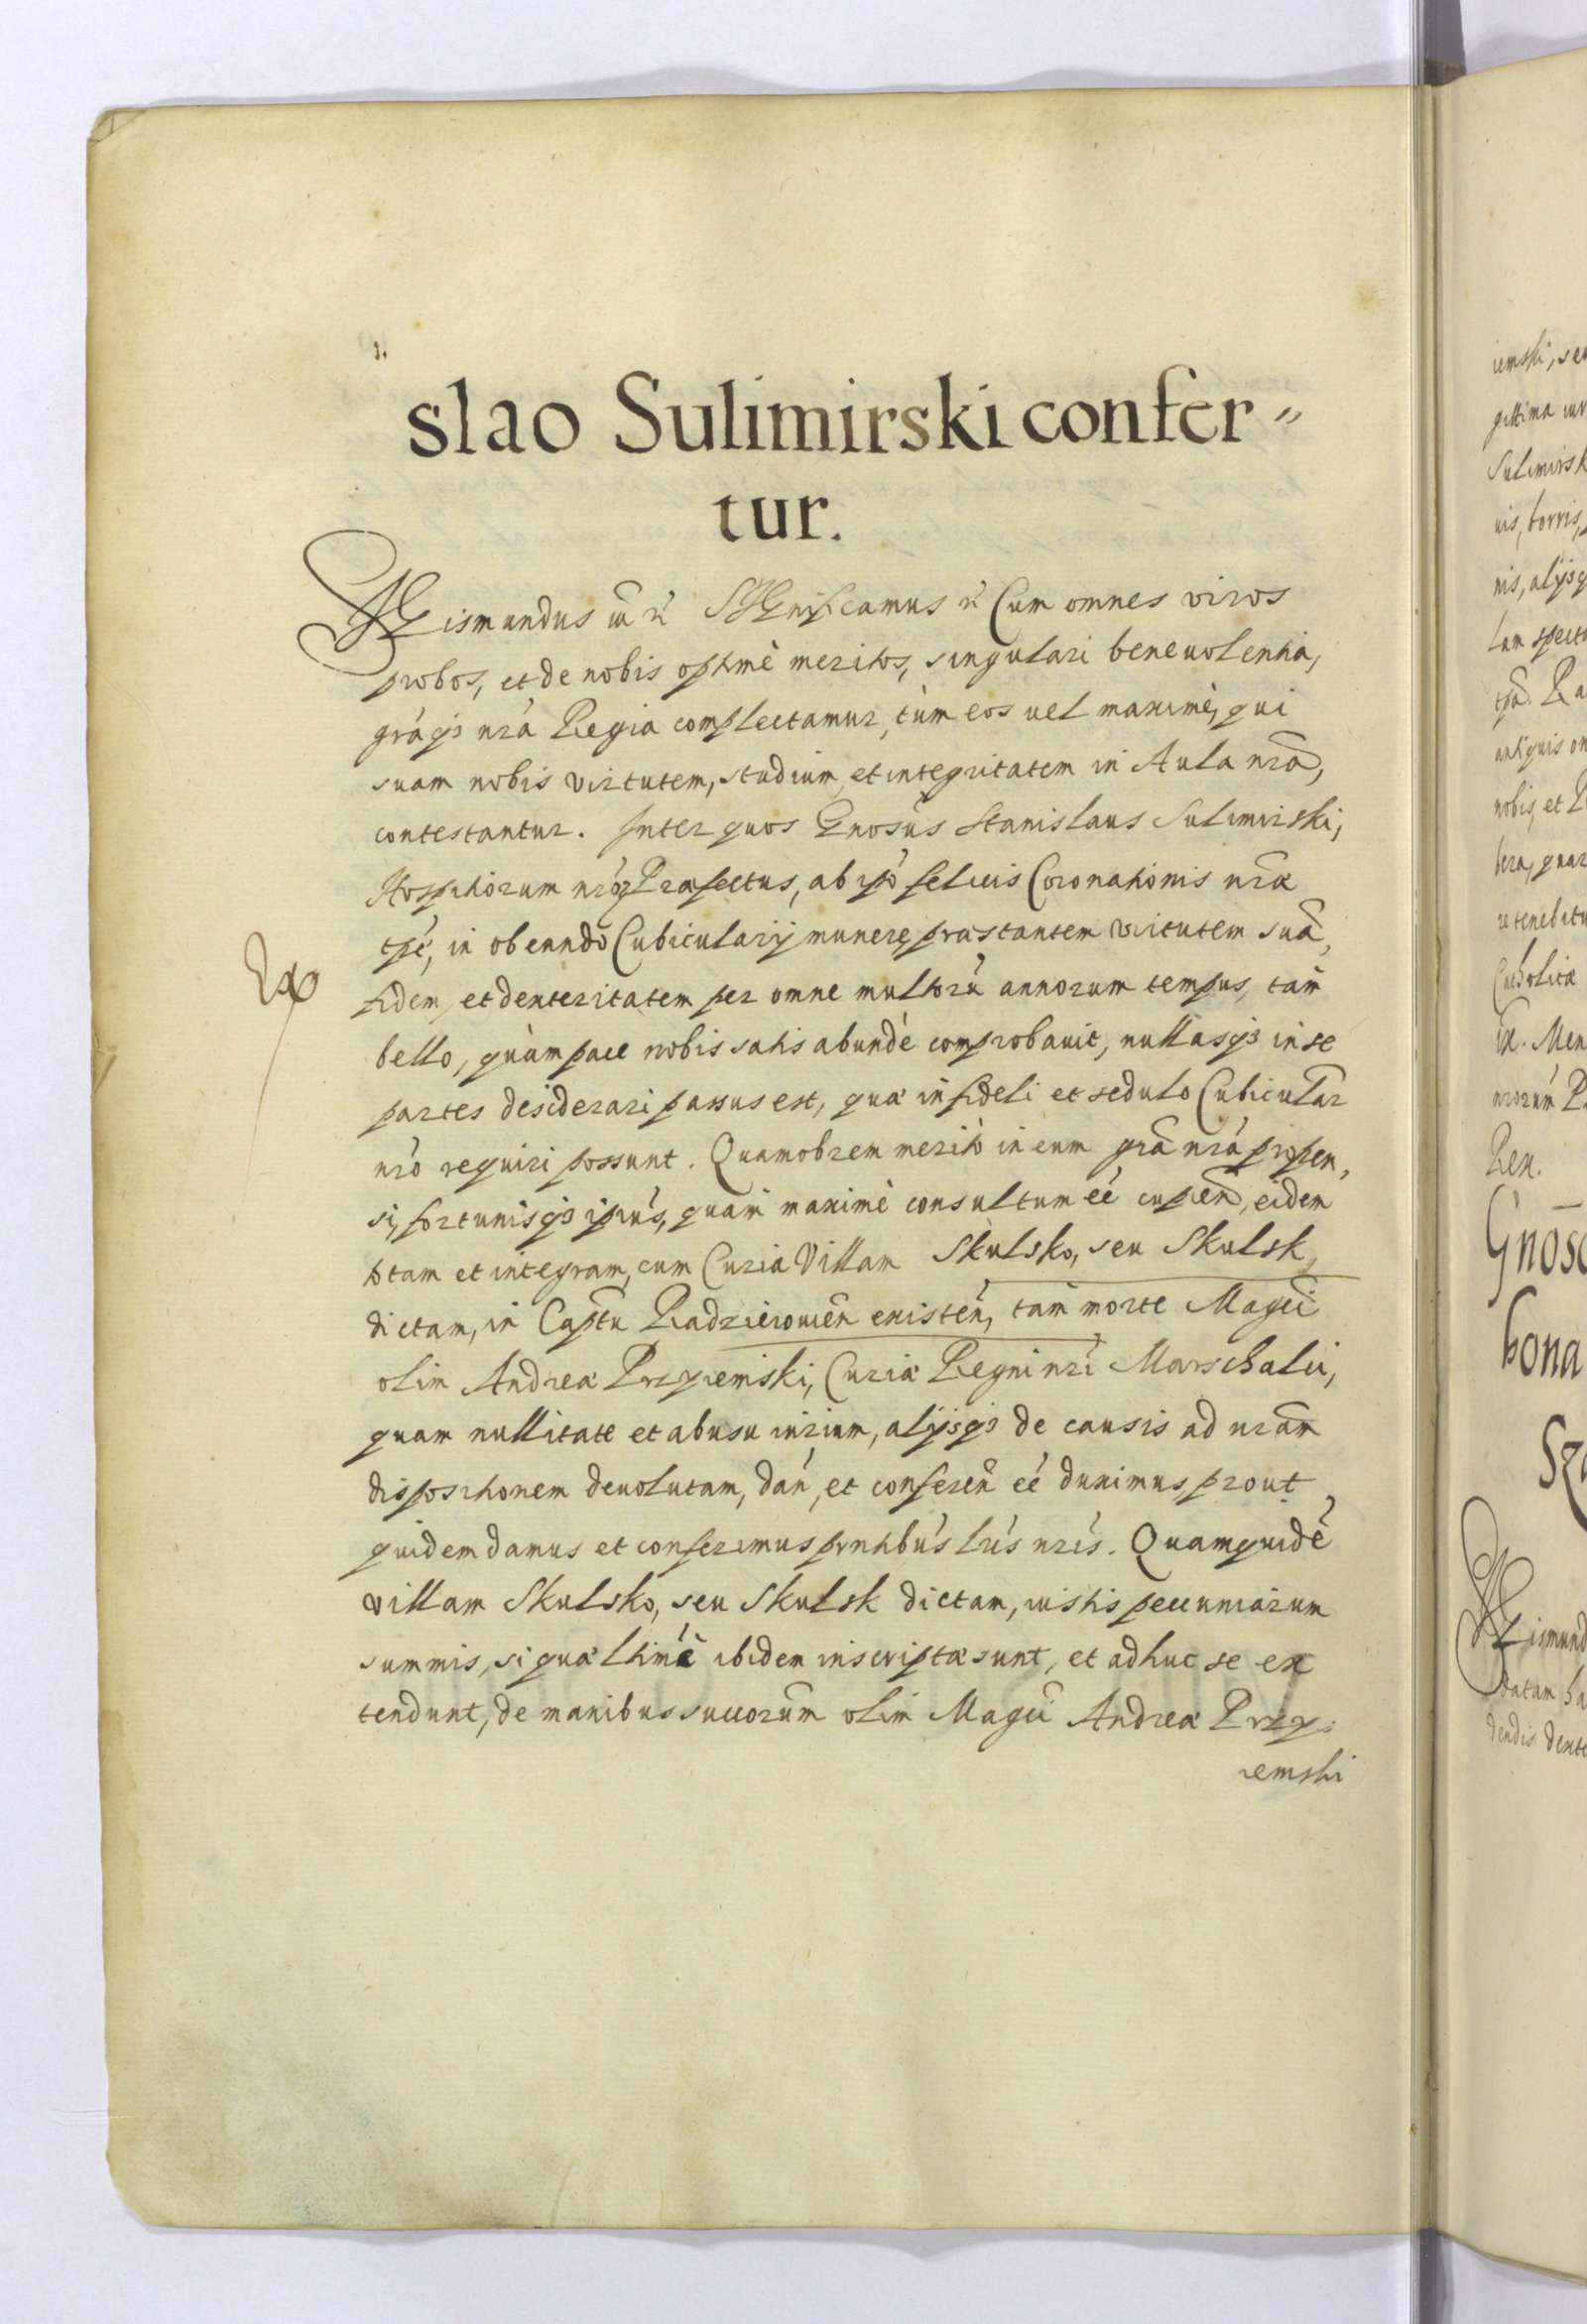 slao Sulimirski confer„
tur.
SIGismundus iii rc̃ SIGnificamus rc̃ Cum omnes viros
probos, et de nobis optimè meritos, singulari beneuolentia,
gráq3 nrá Regia complectamur, tùm eos uel maximè, qui
suam nobis virtutem, studium, et integritatem in Aula nrã,
contestantur. Inter quos Gnosus Stanislaus Sulimirski,
Hospitiorum nroꝝ Præfectus, ab ipso felicis Coronationis nræ
tpé, in obeundo Cubicularij munere, præstantem virtutem suã,
fidem, et dexteritatem per omne multorũ annorum tempus, tam̃
bello, quàm pace nobis satis abundè comprobauit, nullasq3 in se
partes desiderari passus est, quæ in fideli et sedulo Cubicular̃
nró requiri possunt. Quamobrem meritò in eum grã nrá propen,
si, fortunisq3 ipiús, quam maximè consultum eé cupieñ, eidem
totam et integram, cum Curia Villam Skulsko, seu Skulsk,
dictam, in Captu Radzieiouień existeñ, tam̃ morte Magci
olim Andreæ Przyiemski, Curiæ Regni nri Marschalci,
quam nullitate et abusu iurium, alijsq3 de causis ad nram
dispositionem deuolutam, dań, et confereñ eé duximus prout
quidem damus et conferimus pntibús lrís nrís. Quamquidẽ
villam Skulsko, seu Skulsk dictam, iustis pecuniarum
summis, si quæ ltimé ibidem inscriptæ sunt, et adhuc se ex
tendunt, de manibus succorum olim Magci Andreæ Przy:
iemski
iemski, seu
gittima iur
Sulimirsk
nis, alijsq
lam specta
antiquis om
nobis, et R
retenebitu
Catholicæ
nrorum P
Rex.
Gnoso
bona
Sza
SIGismund